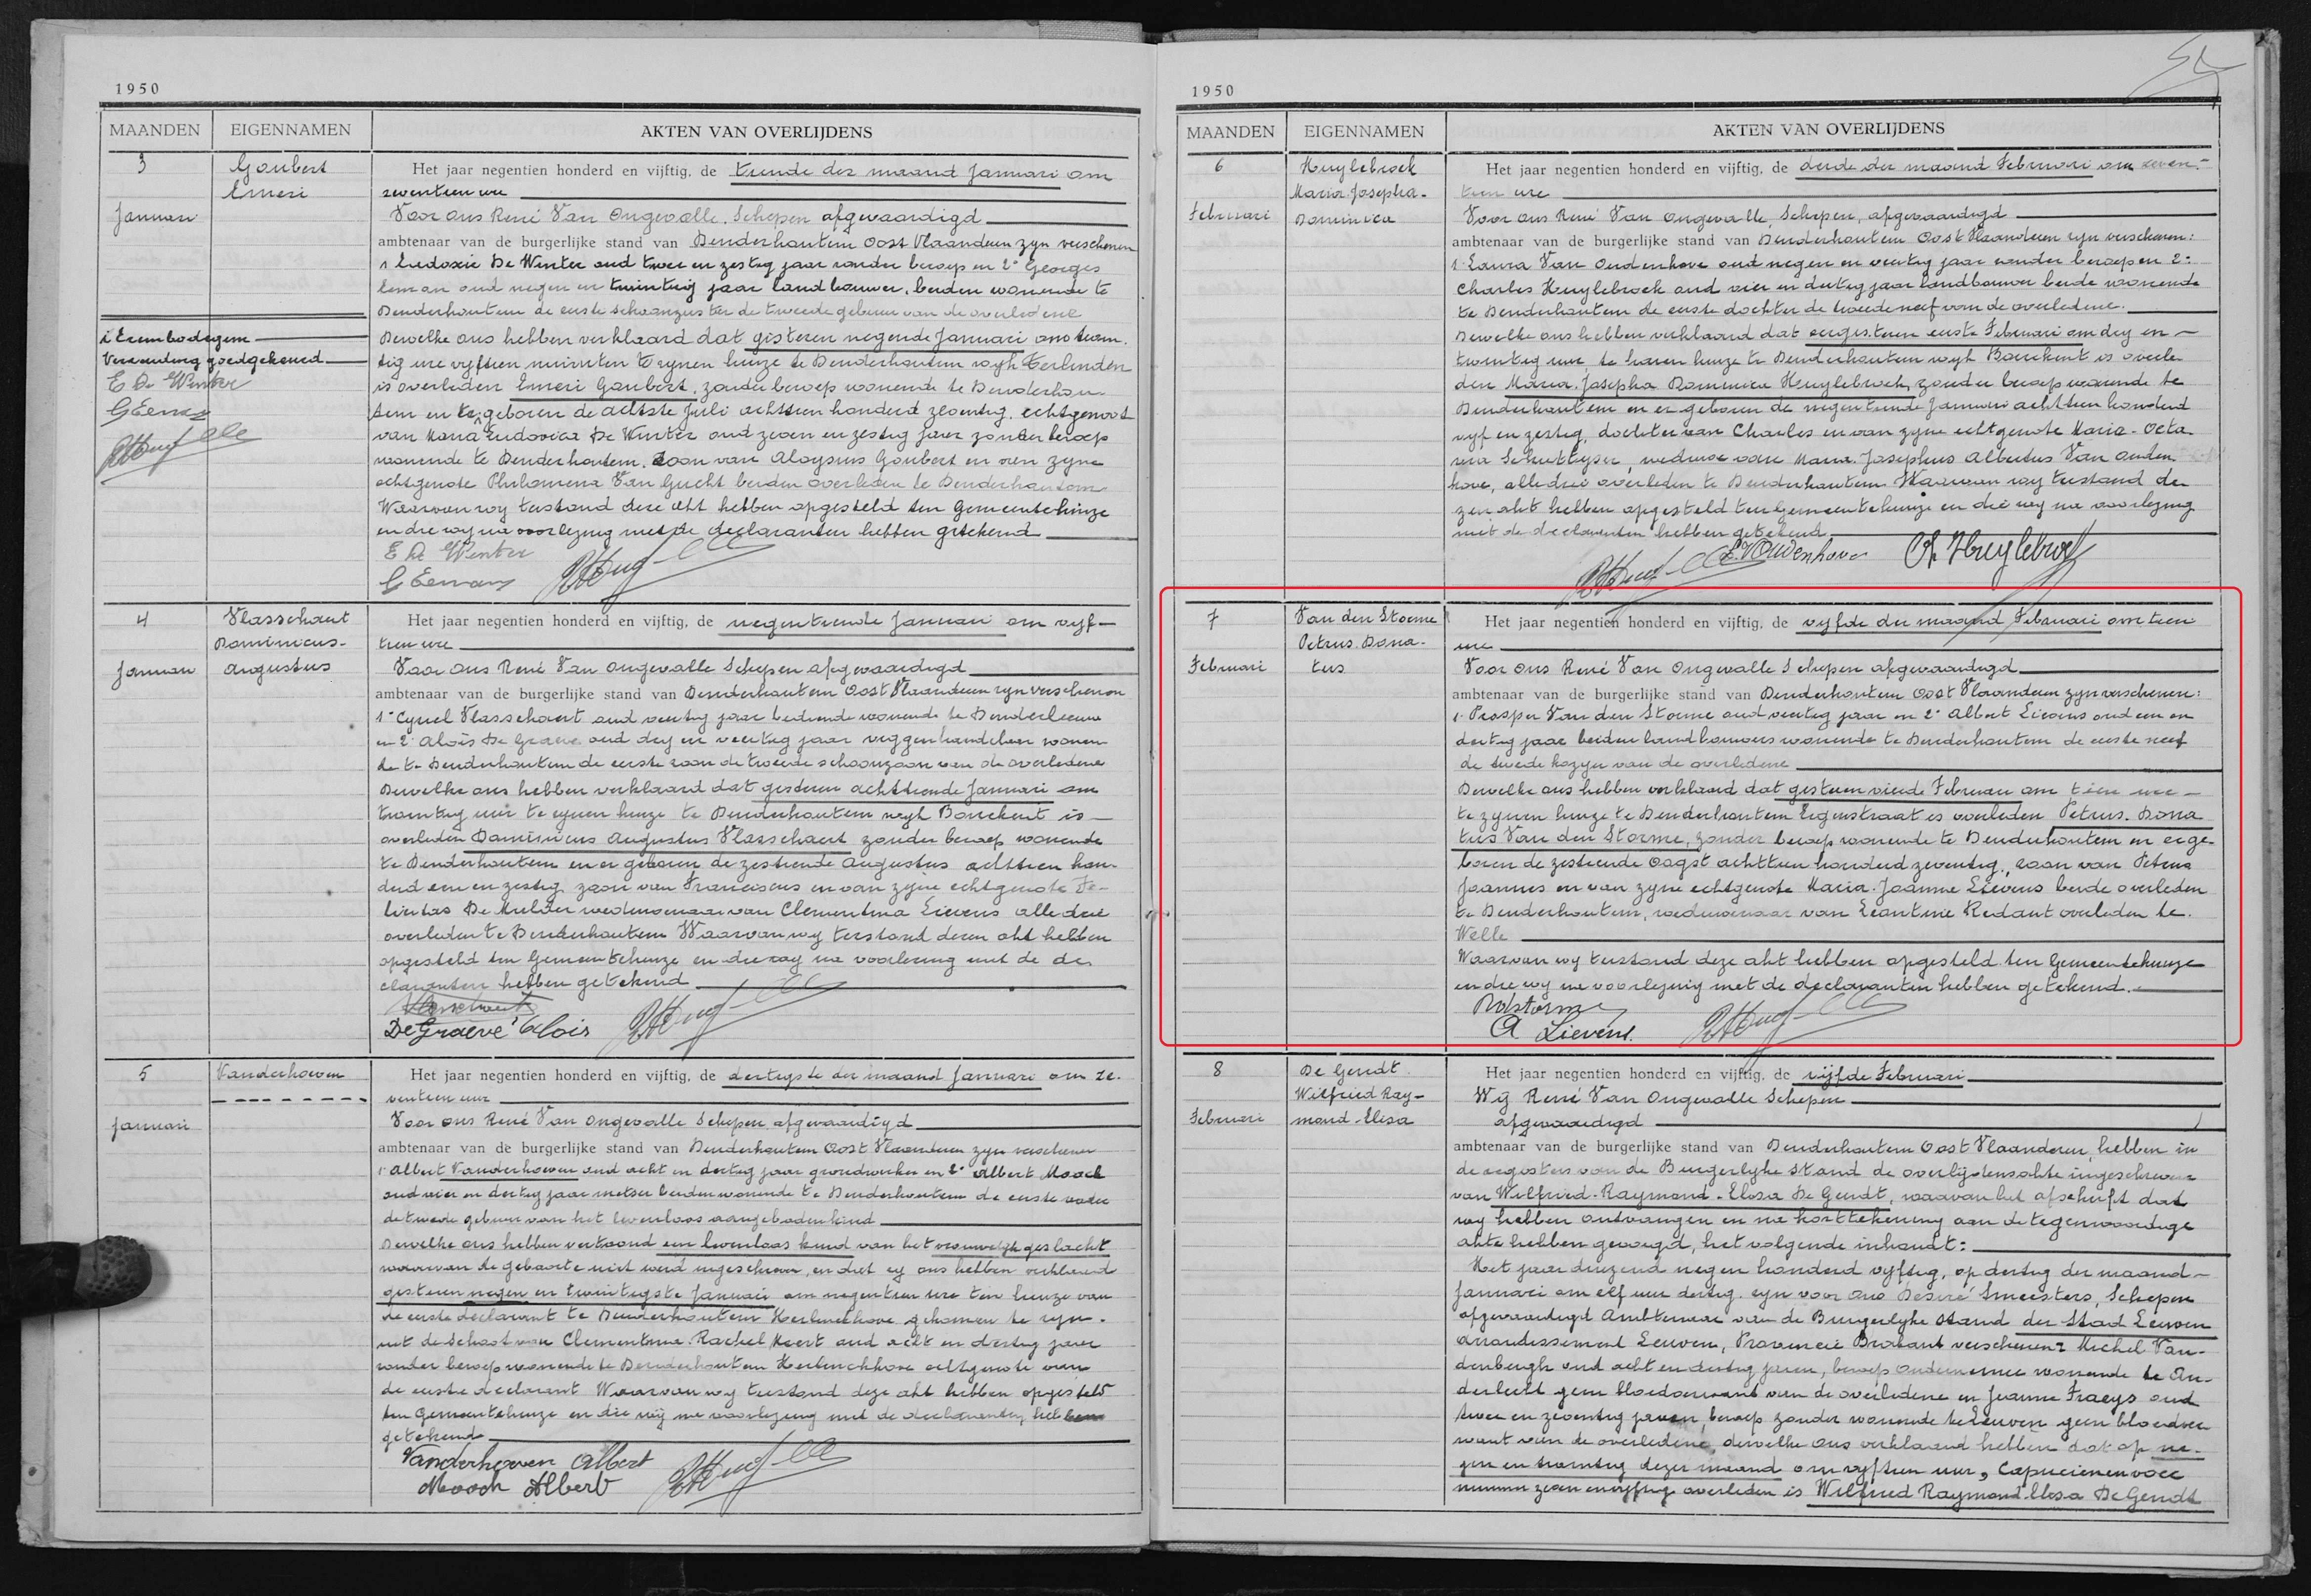 1950
MAANDEN EIGENNAMEN AKTEN VAN OVERLIJDENS
3
Januari
Goubert
Emeri
Het jaar negentien honderd en vijftig, de tiende der maand Januari om
zeventien ure
Voor ons René Van Ongevalle, Schepen afgevaardigd
ambtenaar van de burgerlijke stand van Denderhoutem Oost Vlaanderen zyn verschenen
1 Eudoxie De Winter oud twee en zestig jaar zonder beroep en 2° Georges
Eeman oud negen en twintig jaar landbouwer, beiden wonende te
Denderhoutem de eerste schoonzuster de tweede gebuur van de overledene
Dewelke ons hebben verklaard dat gisteren negende Januari om twin
tig ure vyftien minuten te zynen huize te Denderhoutem wyk
is overleden Emeri Goubert, zonder beroep wonende te Denderhou
tem en te geboren de achtste Juli achttien honderd zeventig, echtgenoot
van Maria Ludovica De Winter oud zeven en zestig jaar zonder beroep
wonende te Denderhoutem, zoon van Aloysius Goubert en van zyne
echtgenote Philomena Van Gucht beiden overleden te Denderhoutem
Waarvan wy terstond deze akt hebben opgesteld ten Gemeentehuize
en die wy na voorlezing met de declaranten hebben getekend
E De Winter
G Eeman
te Erembodegem
Verzending goedgekeurd
E De Winter
G Eeman
4
Januari
Vlasschaert
Dominicus-
Augustus
Het jaar negentien honderd en vijftig, de negentiende Januari om vyf-
tien ure
Voor ons René Van Ongevalle Schepen afgevaardigd
ambtenaar van de burgerlijke stand van Denderhoutem Oost Vlaanderen zyn verschenen
1° Cyriel Vlasschaert oud veertig jaar bediende wonende te Denderleeuw
en 2° Aloïs De Graeve oud dry en veertig jaar wonen
de te Denderhoutem de eerste zoon de tweede schoonzoon van de overledene
Dewelke ons hebben verklaard dat gisteren achttiende Januari om
twintig uur te zynen huize te Denderhoutem wyk Borrekent is
overleden Dominicus Augustus Vlasschaert zonder beroep wonende
te Denderhoutem en er geboren de zestiende Augustus achttien hon-
derd een en zestig zoon van Franciscus en van zyne echtgenote Fe-
licitas De Mulder weduwenaar van Clementina Lievens alle drie
overleden te Denderhoutem Waarvan wy terstond deze akt hebben
opgesteld ten Gemeentehuize en die wy na voorlezing met de de-
claranten hebben getekend
Vlasschaert
De Graeve Aloïs
5
Januari
Vanderhoeven
Het jaar negentien honderd en vijftig, de dertigste der maand Januari om ze-
ventien uur
Voor ons René Van Ongevalle Schepen afgevaardigd
ambtenaar van de burgerlijke stand van Denderhoutem Oost Vlaanderen zyn verschenen
1° Albert Vanderhoeven oud acht en dertig jaar grondwerker en 2° Albert Moock
oud vier en dertig jaar metser beiden wonende te Denderhoutem de eerste vader
de tweede gebuur van het levenloos aangeboden kind
Dewelke ons hebben vertoond een levenloos kind van het vrouwelijk geslacht
waarvan de geboorte niet werd ingeschreven, en dat zy ons hebben verklaard
gisteren negen en twintigste Januari om negentien ure ten huize van
de eerste declarant te Denderhoutem gekomen te zyn
uit de schoot van Clementina Rachel Meert oud acht en dertig jaar
zonder beroep wonende te Denderhoutem echtgenote van
de eerste declarant Waarvan wy terstond deze akt hebben opgesteld
ten Gemeentehuize en die wij na voorlezing met de declaranten hebben
getekend
Vanderhoeven Albert
Moock Albert
1950
MAANDEN EIGENNAMEN AKTEN VAN OVERLIJDENS
6
Februari
Huylebroek
Maria-Josepha-
Dominica
Het jaar negentien honderd en vijftig, de derde der maand Februari om zeven-
tien ure
Voor ons René Van Ongevalle, Schepen, afgevaardigd
ambtenaar van de burgerlijke stand van Denderhoutem Oost Vlaanderen zyn verschenen:
1° Laura Van Oudenhove oud negen en veertig jaar zonder beroep en 2°
Charles Huylebroek oud vier en dertig jaar landbouwer beide wonende
te Denderhoutem de eerste dochter de tweede neef van de overledene.
Dewelke ons hebben verklaard dat eergisteren eerste Februari om dry en
twintig uur, te haren huize te Denderhoutem wyk Borrekent is overle
den Maria-Josepha Dominica Huylebroek, zonder beroep wonende te
Denderhoutem en er geboren de negentiende Januari achttien honderd
vyf en zestig, dochter van Charles en van zyne echtgenote Maria-Octa
via Schuttyser, weduwe van Maria Josephus Albertus Van Ouden
hove, alle drie overleden te Denderhoutem Waarvan wy terstond de
zen akt hebben opgesteld ten Gemeentehuize en die wy na voorlezing
met de declaranten hebben getekend
L VOudenhove Ch Huylebroek
7
Februari
Van den Storme
Petrus Dona-
tus
Het jaar negentien honderd en vijftig, de vyfde der maand Februari om tien
ure
Voor ons René Van Ongevalle Schepen afgevaardigd
ambtenaar van de burgerlijke stand van Denderhoutem Oost Vlaanderen zyn verschenen:
1° Prosper Van den Storme oud veertig jaar en 2° Albert Lievens oud een en
dertig jaar beiden landbouwers wonende te Denderhoutem de eerste neef
de tweede kozyn van de overledene
Dewelke ons hebben verklaard dat gisteren vierde Februari om tien ure
te zynen huize te Denderhoutem Eigenstraat is overleden Petrus Dona
tus Van den Storme, zonder beroep wonende te Denderhoutem en er ge-
boren de zestiende Oogst achttien honderd zeventig, zoon van Petrus
Joannes en van zyne echtgenote Maria-Joanna Lievens beide overleden
te Denderhoutem, weduwenaar van Leontine Redant overleden te
Welle
Waarvan wy terstond deze akt hebben opgesteld ten Gemeentehuize
en die wy na voorlezing met de declaranten hebben getekend.
A Lievens
8
Februari
De Gendt
Wilfried Ray-
mond Elisa
Het jaar negentien honderd en vijftig, de vijfde Februari
Wij René Van Ongevalle Schepen
afgevaardigd
ambtenaar van de burgerlijke stand van Denderhoutem Oost Vlaanderen, hebben in
de registers van de Burgerlyke Stand de overlijdensakte ingeschreven
van Wilfried-Raymond-Elisa De Gendt, waarvan het afschrift dat
wy hebben ontvangen en na korttekening aan de tegenwoordige
akte hebben gevoegd, het volgende inhoudt:
Het jaar duizend negen honderd vyftig, op dertig der maand
Januari om elf uur dertig, zyn voor ons Desiré Smeesters, Schepen
afgevaardigd Ambtenaar van de Burgerlyke stand der Stad Leuven
arrondissement Leuven, Provincie Brabant verschenen Michel Van-
denbergh oud acht en dertig jaren, beroep ondernemer wonende te An-
derlecht geen bloedverwant van de overledene en Jeanne Fraeys oud
twee en zeventig jaren, beroep zonder wonende te Leuven geen bloedver
want van de overledene, dewelke ons verklaard hebben dat op ne-
gen en twintig dezer maand om vyftien uur, Capucienenvoer
nummer zeven en vyftig overleden is Wilfried Raymond Elisa De Gendt